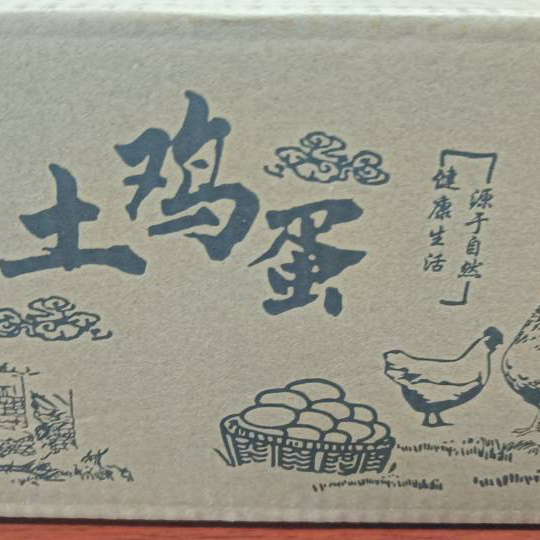 土鸡蛋
源于自然
健康生活